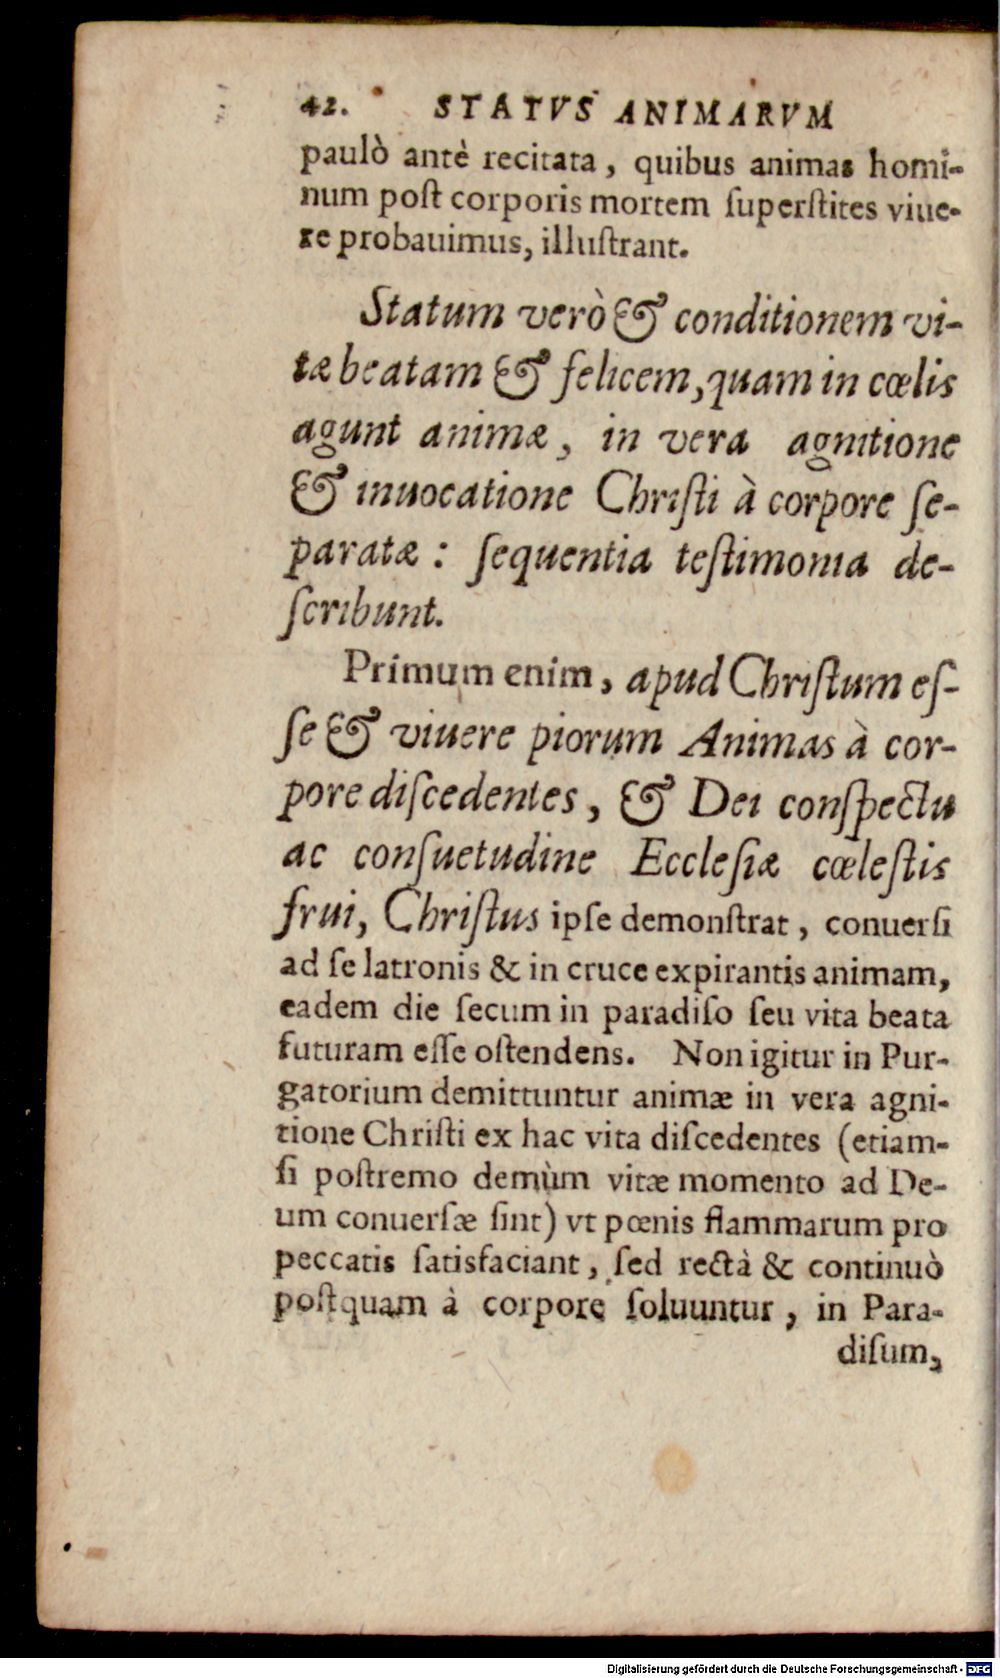 42. STATVS ANIMARVM
paulò antè recitata, quibus animas homi-
num poſt corporis mortem ſuperſtites viue-
re probauimus, illuſtrant.
Statum verò & conditionem vi-
tæ beatam & felicem, quam in cœlis
agunt animæ, in vera agnitione
& inuocatione Chriſti à corpore ſe-
paratæ: ſequentia teſtimonia de-
ſcribunt.
Primum enim, apud Chriſtum eſ-
ſe & viuere piorum Animas à cor-
pore diſcedentes, & Dei conſpectu
ac conſuetudine Eccleſiæ cœleſtis
frui, Chriſtus ipſe demonſtrat, conuerſi
ad ſe latronis & in cruce expirantis animam,
eadem die ſecum in paradiſo ſeu vita beata
futuram eſſe oſtendens. Non igitur in Pur-
gatorium demittuntur animæ in vera agni-
tione Chriſti ex hac vita diſcedentes (etiam-
ſi poſtremo demùm vitæ momento ad De-
um conuerſæ ſint) vt pœnis flammarum pro
peccatis ſatisfaciant, ſed rectà & continuò
poſtquam à corpore ſoluuntur, in Para-
diſum,
Digitalisierung gefördert durch die Deutsche Forschungsgemeinschaft - DFG